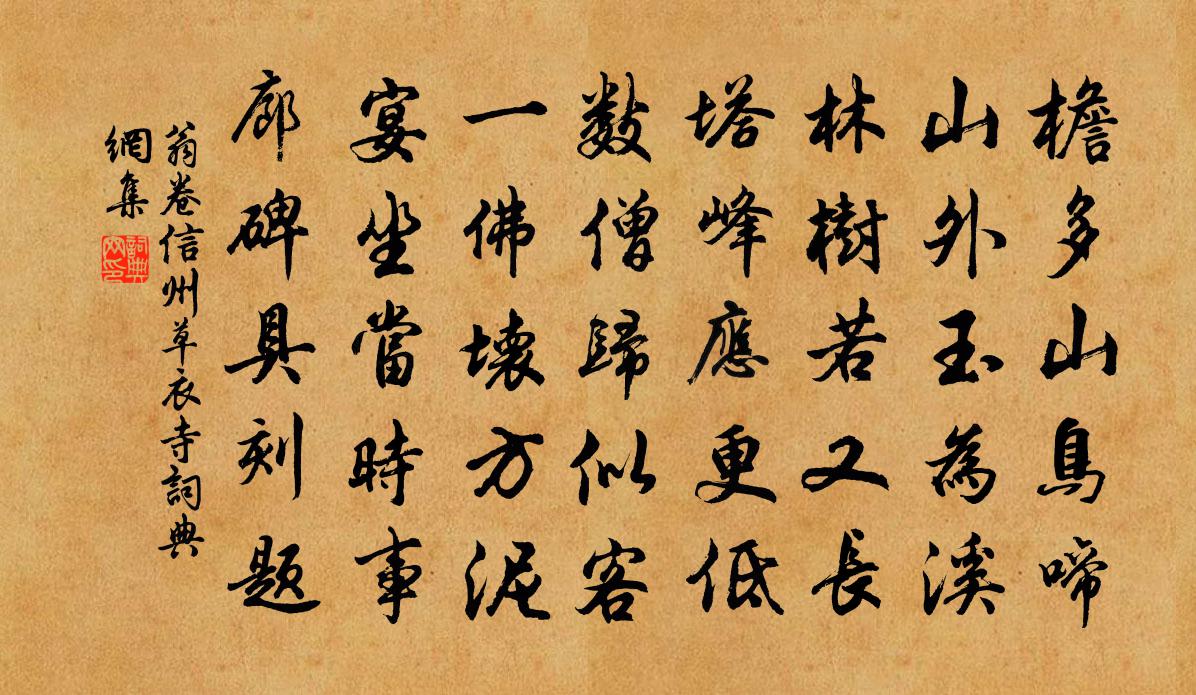 檐多山鳥啼
山外玉為溪
林樹若又長
塔峰應更低
数僧歸似客
一佛壞方泥
宴坐當時事
廊碑具刻題
翁卷信州草衣寺詞典
網集
詞典
网印